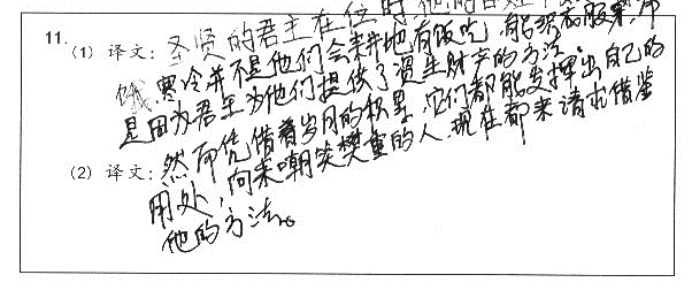 11.
(1) 译文：圣贤的君主在位时，他的百姓不
饿寒冷并不是他们会耕地有饭吃，能织衣服穿，而
是因为君主为他们提供了资生财产的方法。
(2) 译文：然而凭借着岁月的积累，它们都能发挥出自己的
用处，向来嘲笑樊重的人，现在都来请求借鉴
他的方法。